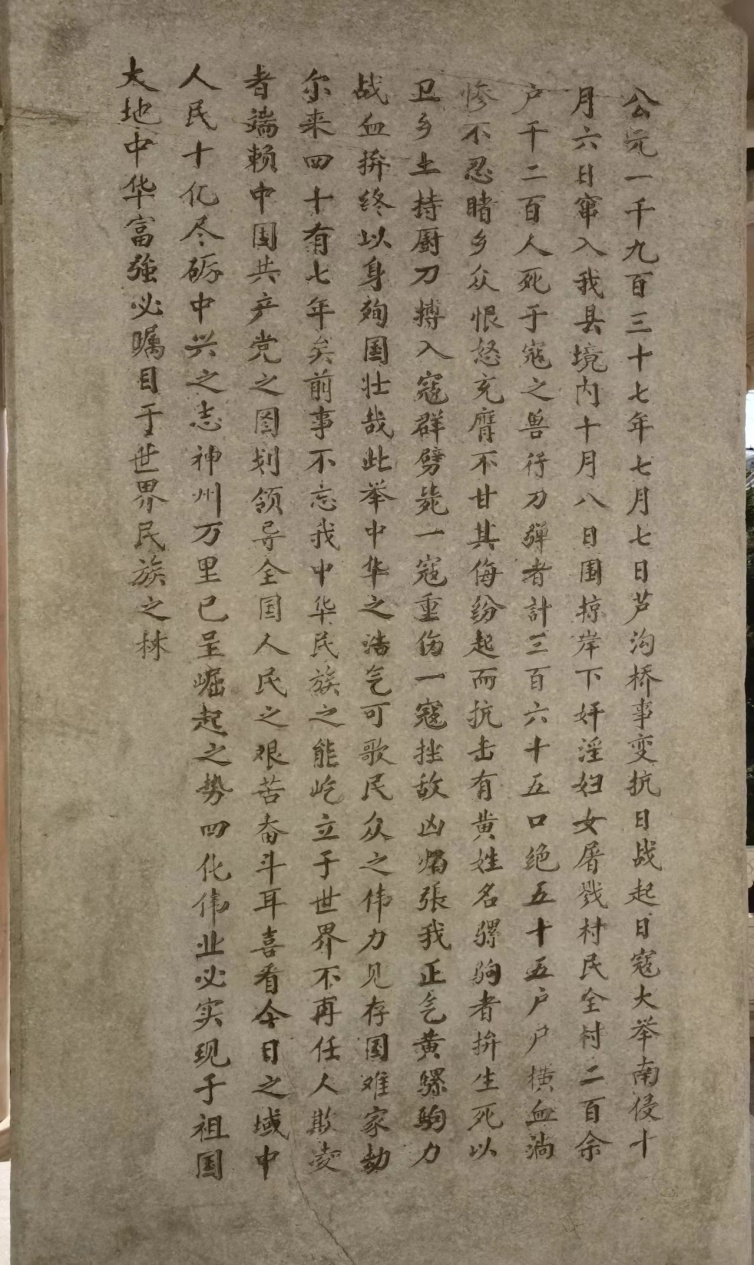 公元一千九百三十七年七月七日芦沟桥事变抗日战起日寇大举南侵十
月六日窜入我县境内十月八日围掠岸下奸淫妇女屠戮村民全村二百余
户千二百人死于寇之兽行刀弹者計三百六十五口绝五十五户尸横血淌
惨不忍睹乡众恨怒充膺不甘其侮纷起而抗击有黄姓名骡驹者拚生死以
卫乡土持厨刀搏入寇群劈毙一寇重伤一寇挫敌凶焰張我正气黄骡驹力
战血拚终以身殉国壮哉此举中华之浩气可歌民众之伟力见存国难家劫
尔来四十有七年矣前事不忘我中华民族之能屹立于世界不再任人欺凌
者端赖中国共产党之图划领导全国人民之艰苦奋斗耳喜看今日之域中
人民十亿尽砺中兴之志神州万里已呈崛起之势四化伟业必实现于祖国
大地中华富強必瞩目于世界民族之林